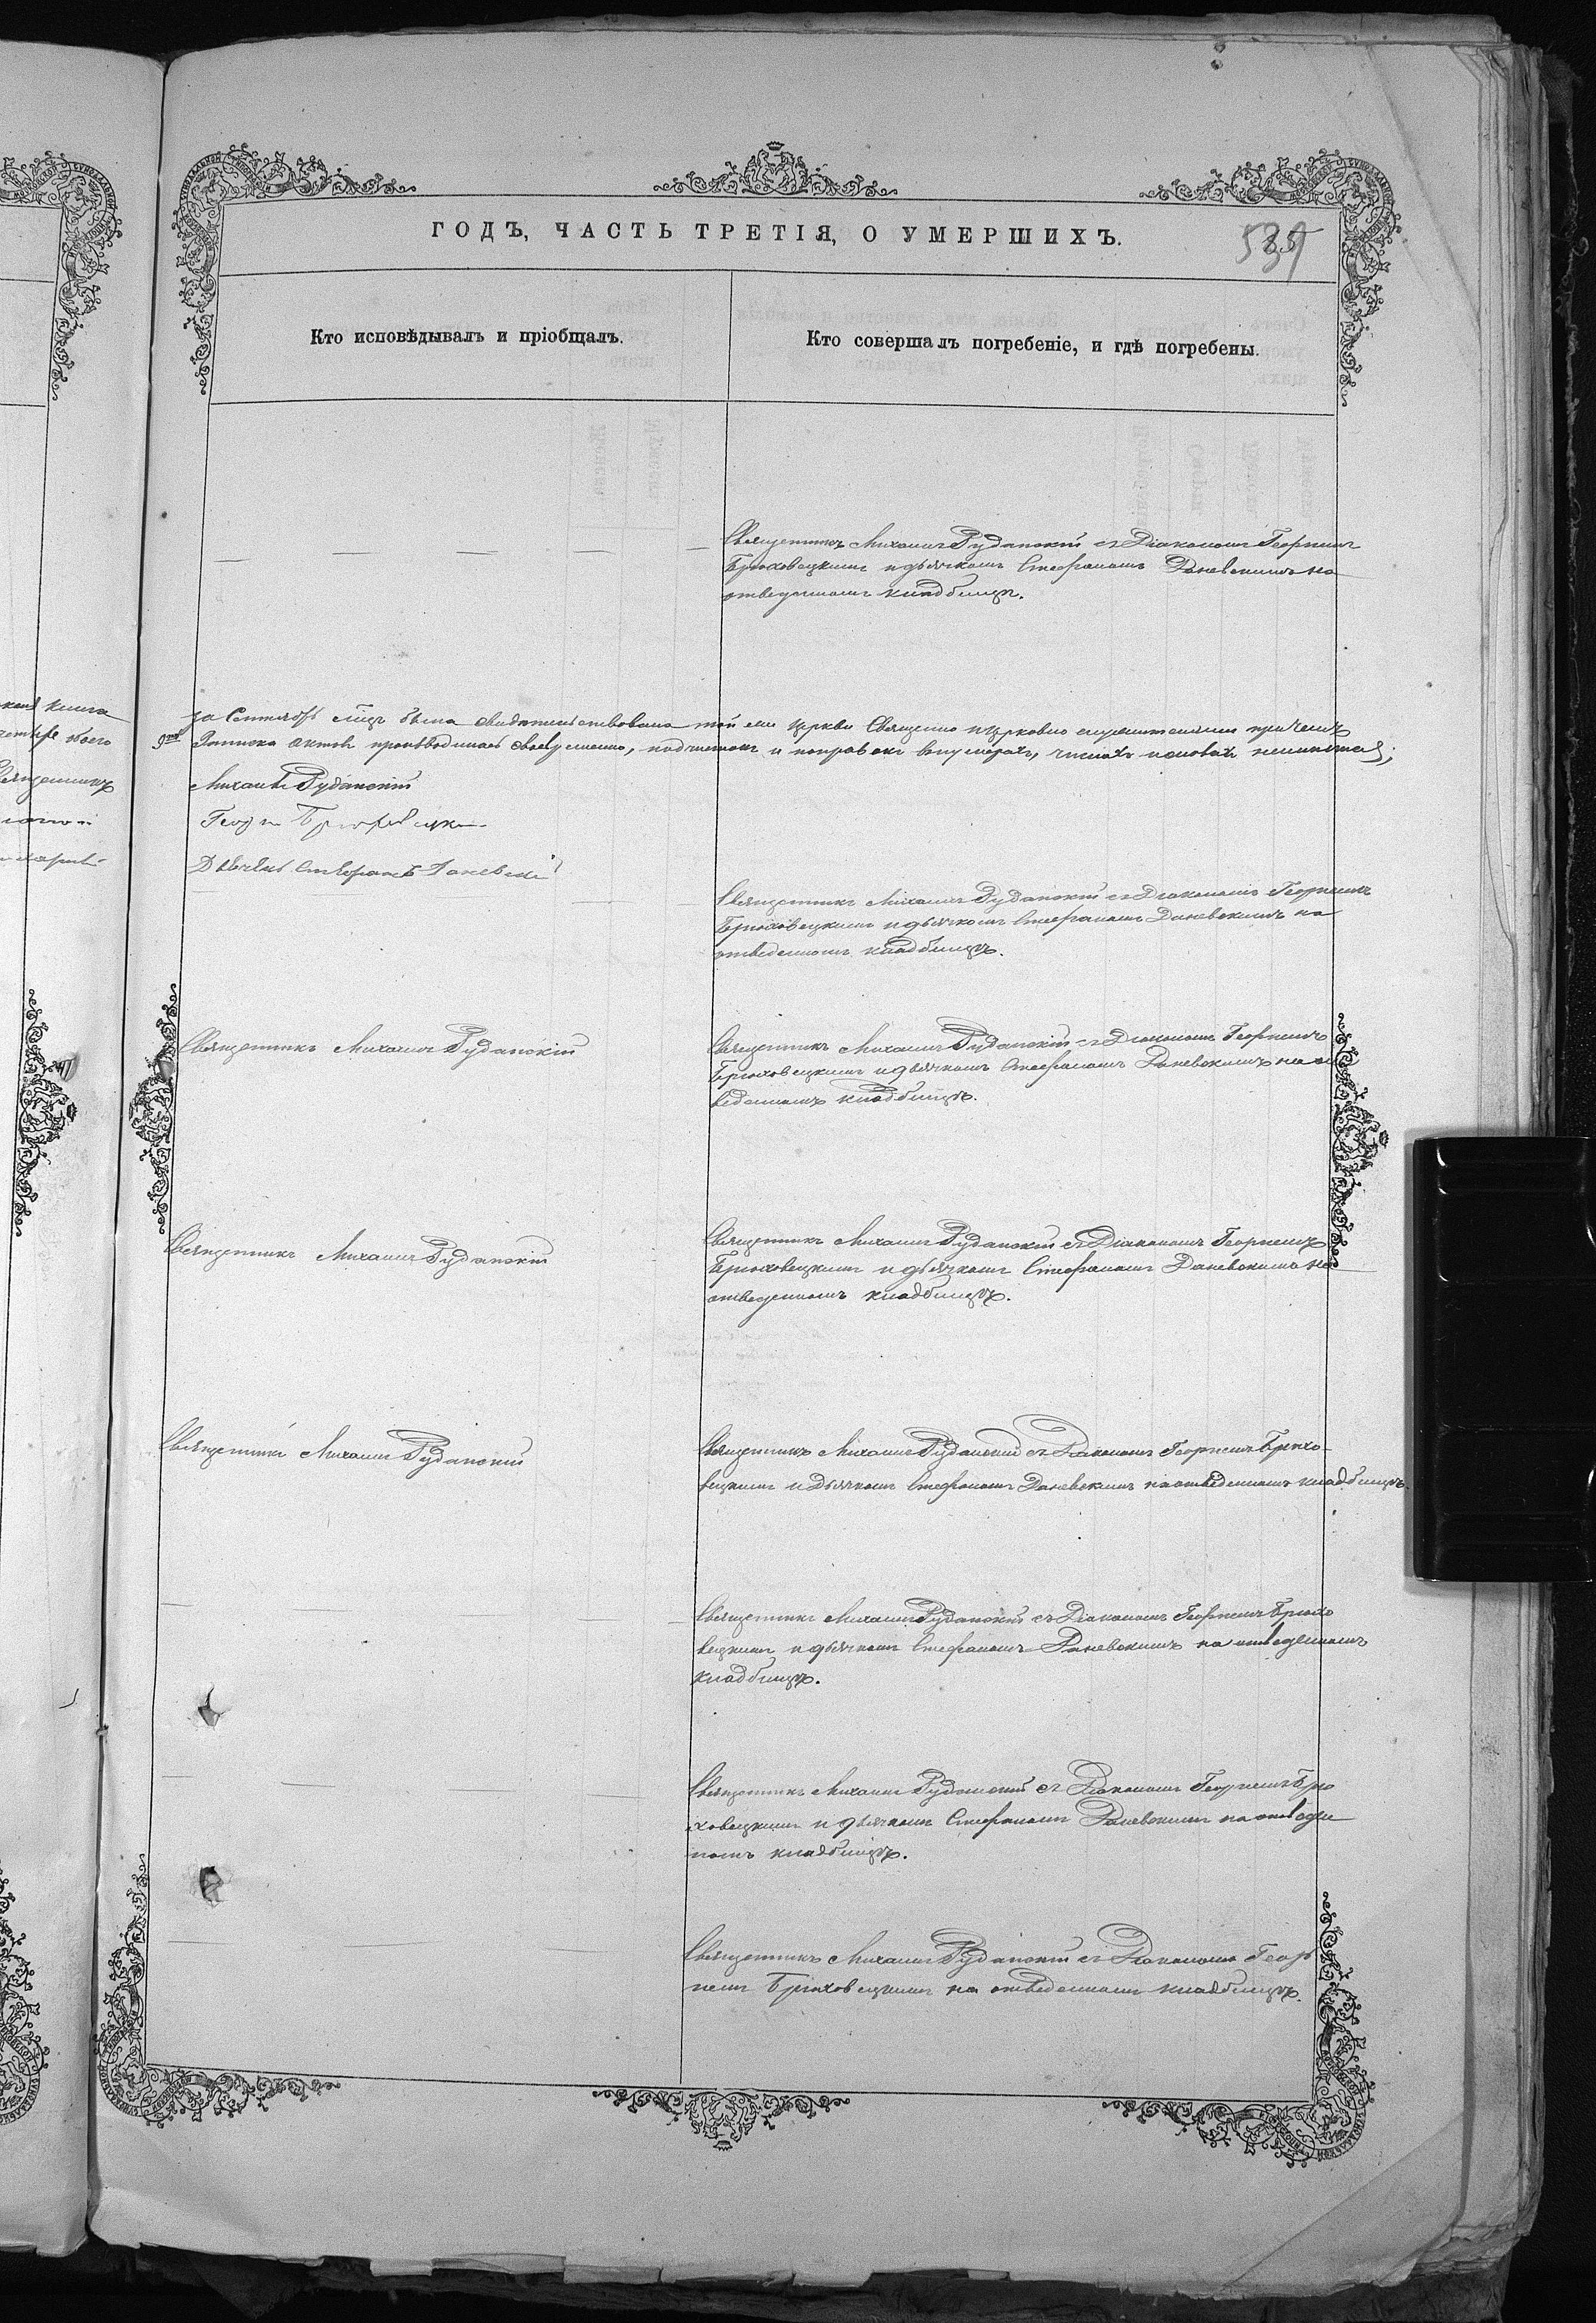 ГОДЪ, ЧАСТЬ ТРЕТІЯ, О УМЕРШИХЪ.
Кто исповѣдывалъ и пріобщалъ.
Кто совершалъ погребеніе, и гдѣ погребены.
Священникъ Михаилъ Руданскій съ Діакономъ Георгіемъ
Брюховецкимъ и дьячкомъ Стефаномъ Даневскимъ на
отведенномъ кладбищѣ.
За Сентябрь мцъ была свидѣтельствована той же церкви Священно и церковно служителями причемъ
Записка актовъ производилась своевременно, подчистокъ и поправокъ въ нумерахъ, числахъ и словахъ
Михаилъ Руданскій
Дьячекъ Стефанъ Даневскій
Священникъ Михаилъ Руданскій съ Діакономъ Георгіемъ
Брюховецкимъ и дьячкомъ Стефаномъ Даневскимъ на
отведенномъ кладбищѣ.
Священникъ Михаилъ Руданскій
Священникъ Михаилъ Руданскій съ Діакономъ Георгіемъ
Брюховецкимъ и дьячкомъ Стефаномъ Даневскимъ на от
веденномъ кладбищѣ.
Священникъ Михаилъ Руданскій
Священникъ Михаилъ Руданскій съ Діакономъ Георгіемъ
Брюховецкимъ и дьячкомъ Стефаномъ Даневскимъ на
отведенномъ кладбищѣ.
Священникъ Михаилъ Руданскій
Священникъ Михаилъ Руданскій съ Діакономъ Георгіемъ Брюхо-
вецкимъ и Дьячкомъ Стефаномъ Даневскимъ на отведенномъ кладбищѣ.
Священникъ Михаилъ Руданскій съ Діакономъ Георгіемъ Брюхо
вецкимъ и дьячкомъ Стефаномъ Даневскимъ на отведенномъ
кладбищѣ.
Священникъ Михаилъ Руданскій съ Діакономъ Георгіемъ Брю
ховецкимъ и дьячкомъ Стефаномъ Даневскимъ на отведен
номъ кладбищѣ.
Священникъ Михаилъ Руданскій съ Діакономъ Геор
гіемъ Брюховецкимъ на отведенномъ кладбищѣ.